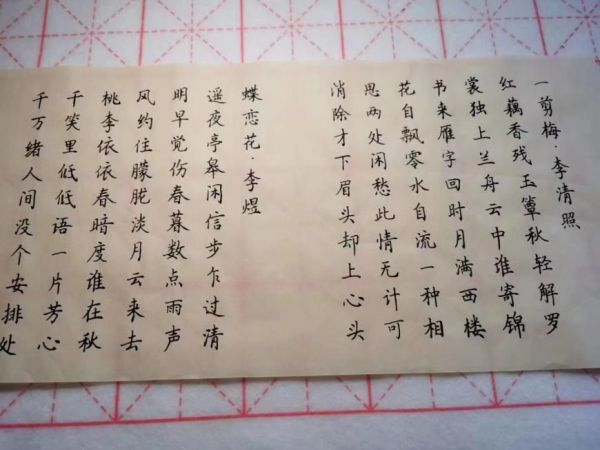 一剪梅·李清照
红藕香残玉簟秋轻解罗
裳独上兰舟云中谁寄锦
书来雁字回时月满西楼
花自飘零水自流一种相
思两处闲愁此情无计可
消除才下眉头却上心头
蝶恋花·李煜
遥夜亭皋闲信步乍过清
明早觉伤春暮数点雨声
风约住朦胧淡月云来去
桃李依依春暗度谁在秋
千笑里低低语一片芳心
千万绪人间没个安排处